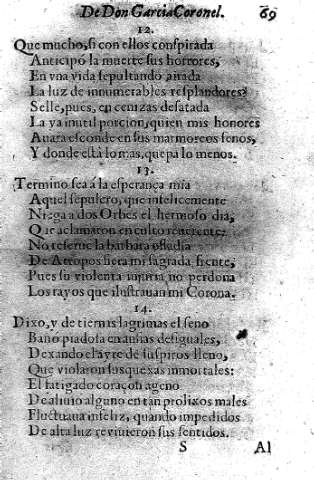 De Don Garcia Coronel. 69
12.
Que mucho, si con ellos conspirada
Anticipò la muerte sus horrores,
En vna vida sepultando airada
La luz de innumerables resplandores?
Selle, pues, en cenizas desatada
La ya inutil porcion, quien mis honores
Auara esconde en sus marmoreos senos,
Y donde està lo mas, quepa lo menos.
13.
Termino sea á la esperança mia
Aquel sepulcro, que infelicemente
Niega a dos Orbes el hermoso dia,
Que aclamaron en culto reuerente:
No reserue la barbara ossadia
De Atropos fiera mi sagrada frente,
Pues su violenta injuria no perdona
Los rayos que ilustrauan mi Corona.
14.
Dixo, y de tiernas lagrimas el seno
Bañò piadosa en ansias desiguales,
Dexando el ayre de suspiros lleno,
Que violaron sus quexas inmortales:
El fatigado coraçon ageno
De aliuio alguno en tan prolixos males
Fluctuaua infeliz, quando impedidos
De alta luz reviuieron sus sentidos.
S Al